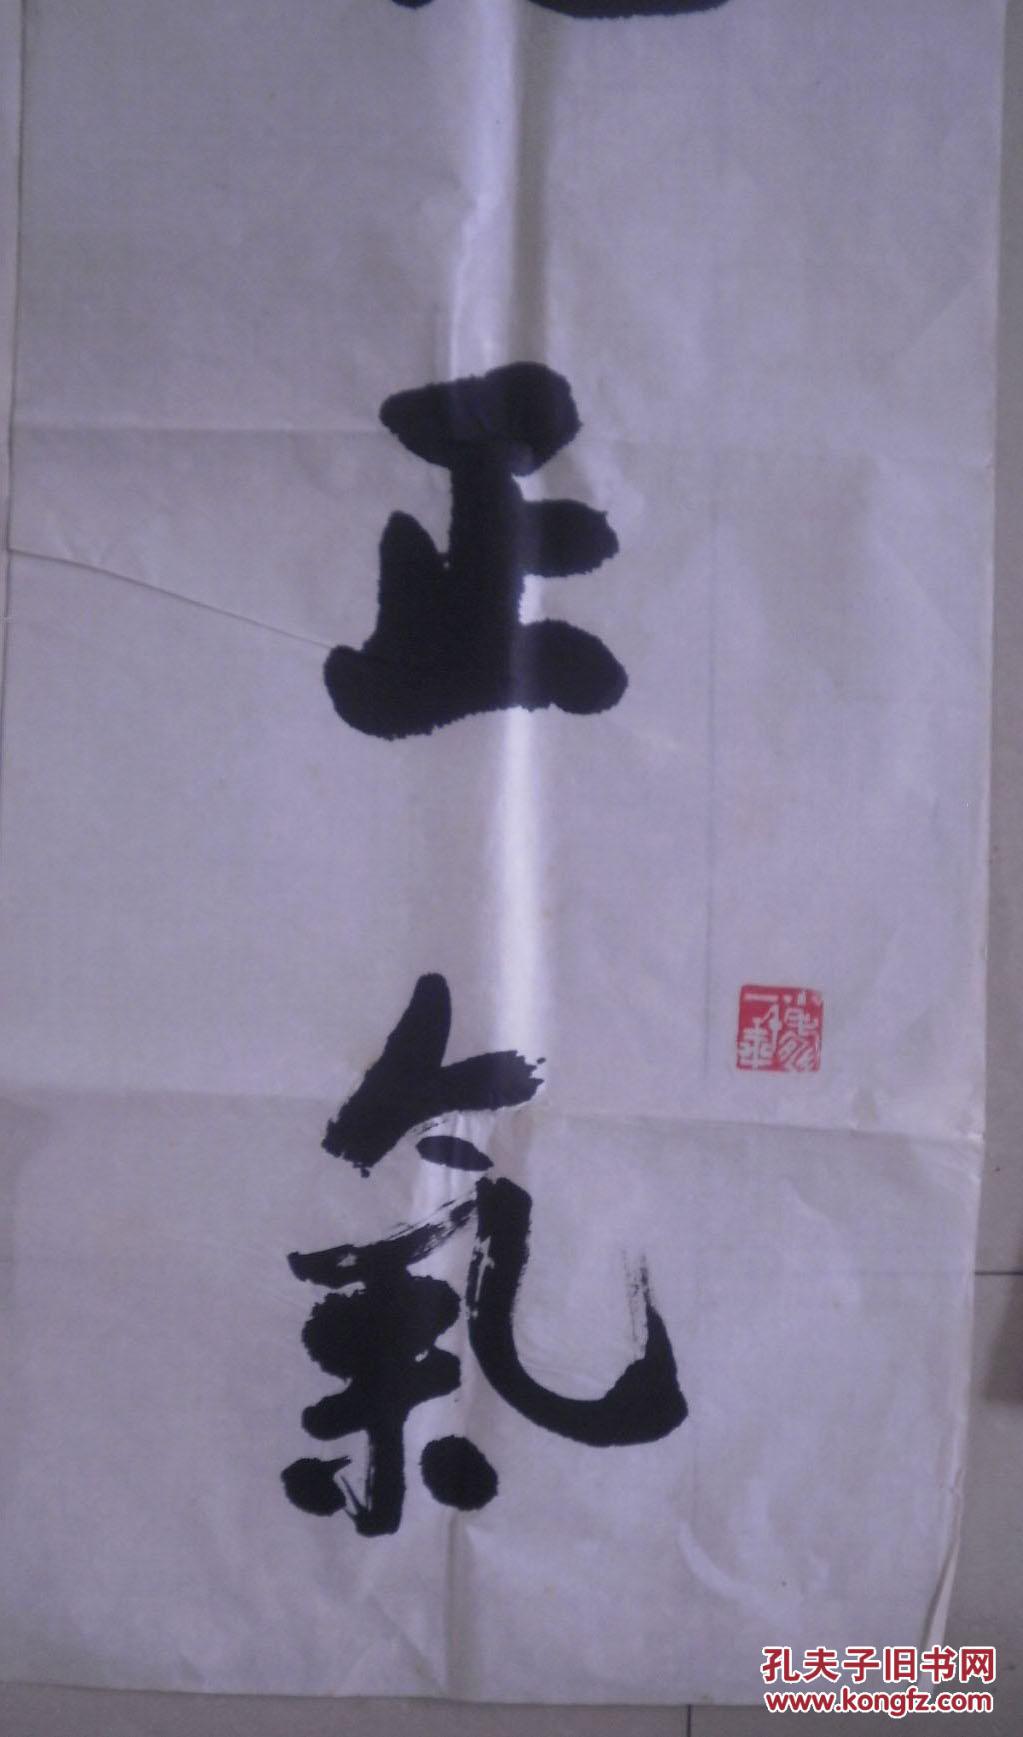 正
氣
孔夫子旧书网
www.kongfz.com